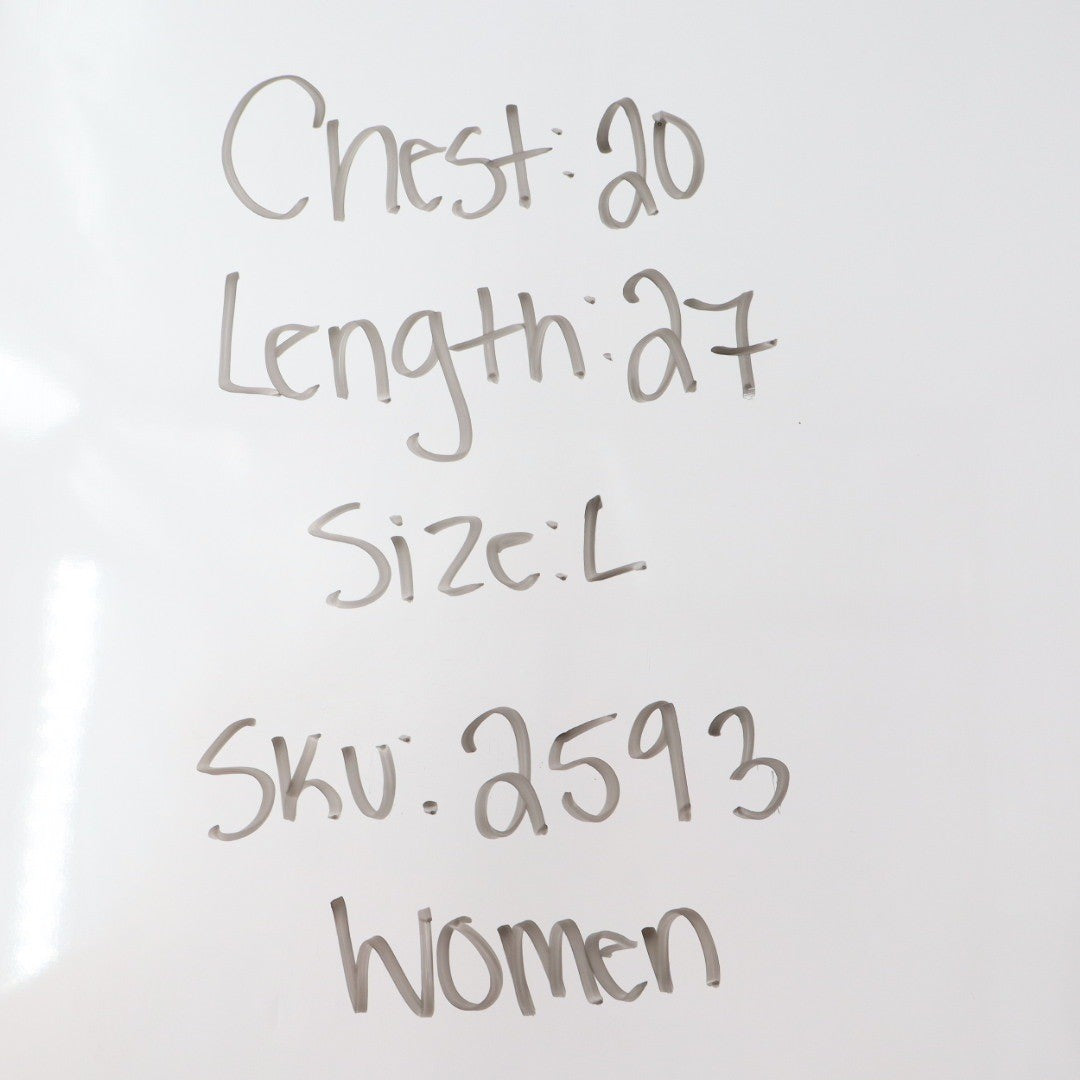 Chest: 20
Length: 27
Size: L
SKU: 2593
Women